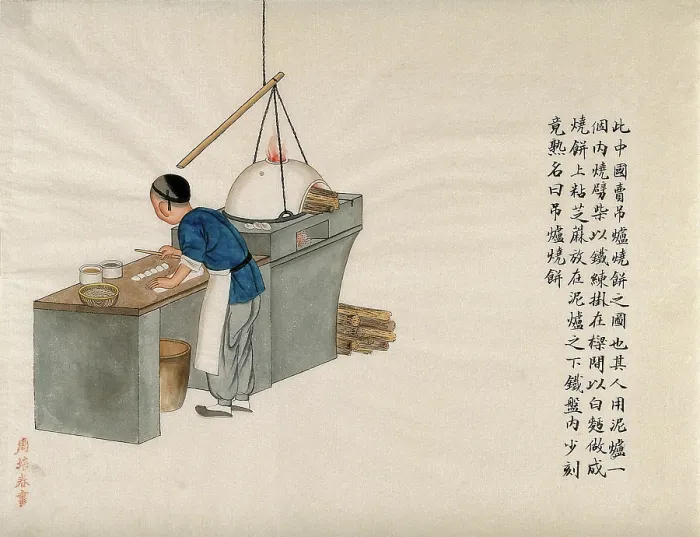 此中國賣吊爐燒餅之圖也其人用泥爐一
個内燒劈柴以鐵練掛在樑間以白麵做成
燒餅上粘芝蔴放在泥爐之下鐵盤内少刻
竟熟名曰吊爐燒餅
周培春畫